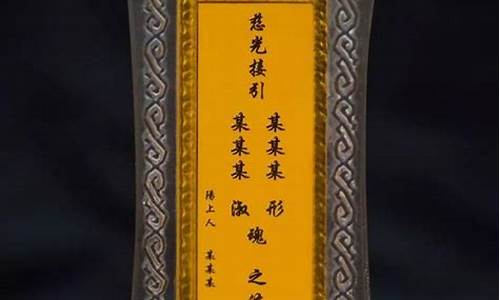 慈光接引
某某某 形
某某某 淑
瑰之
陽上人 某某某